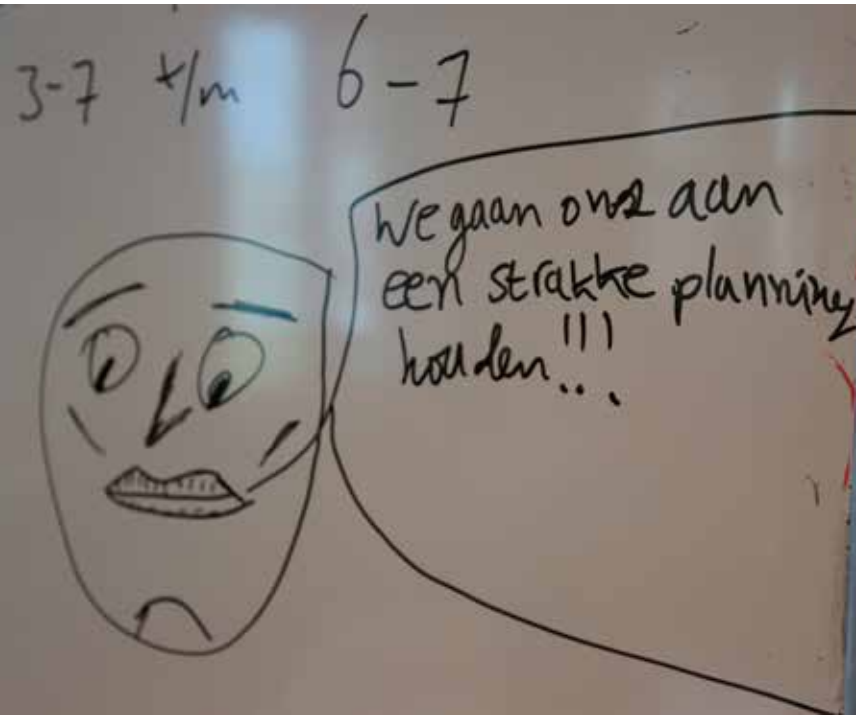 3-7 t/m 6-7
We gaan ons aan
een strakke planning
houden!!!